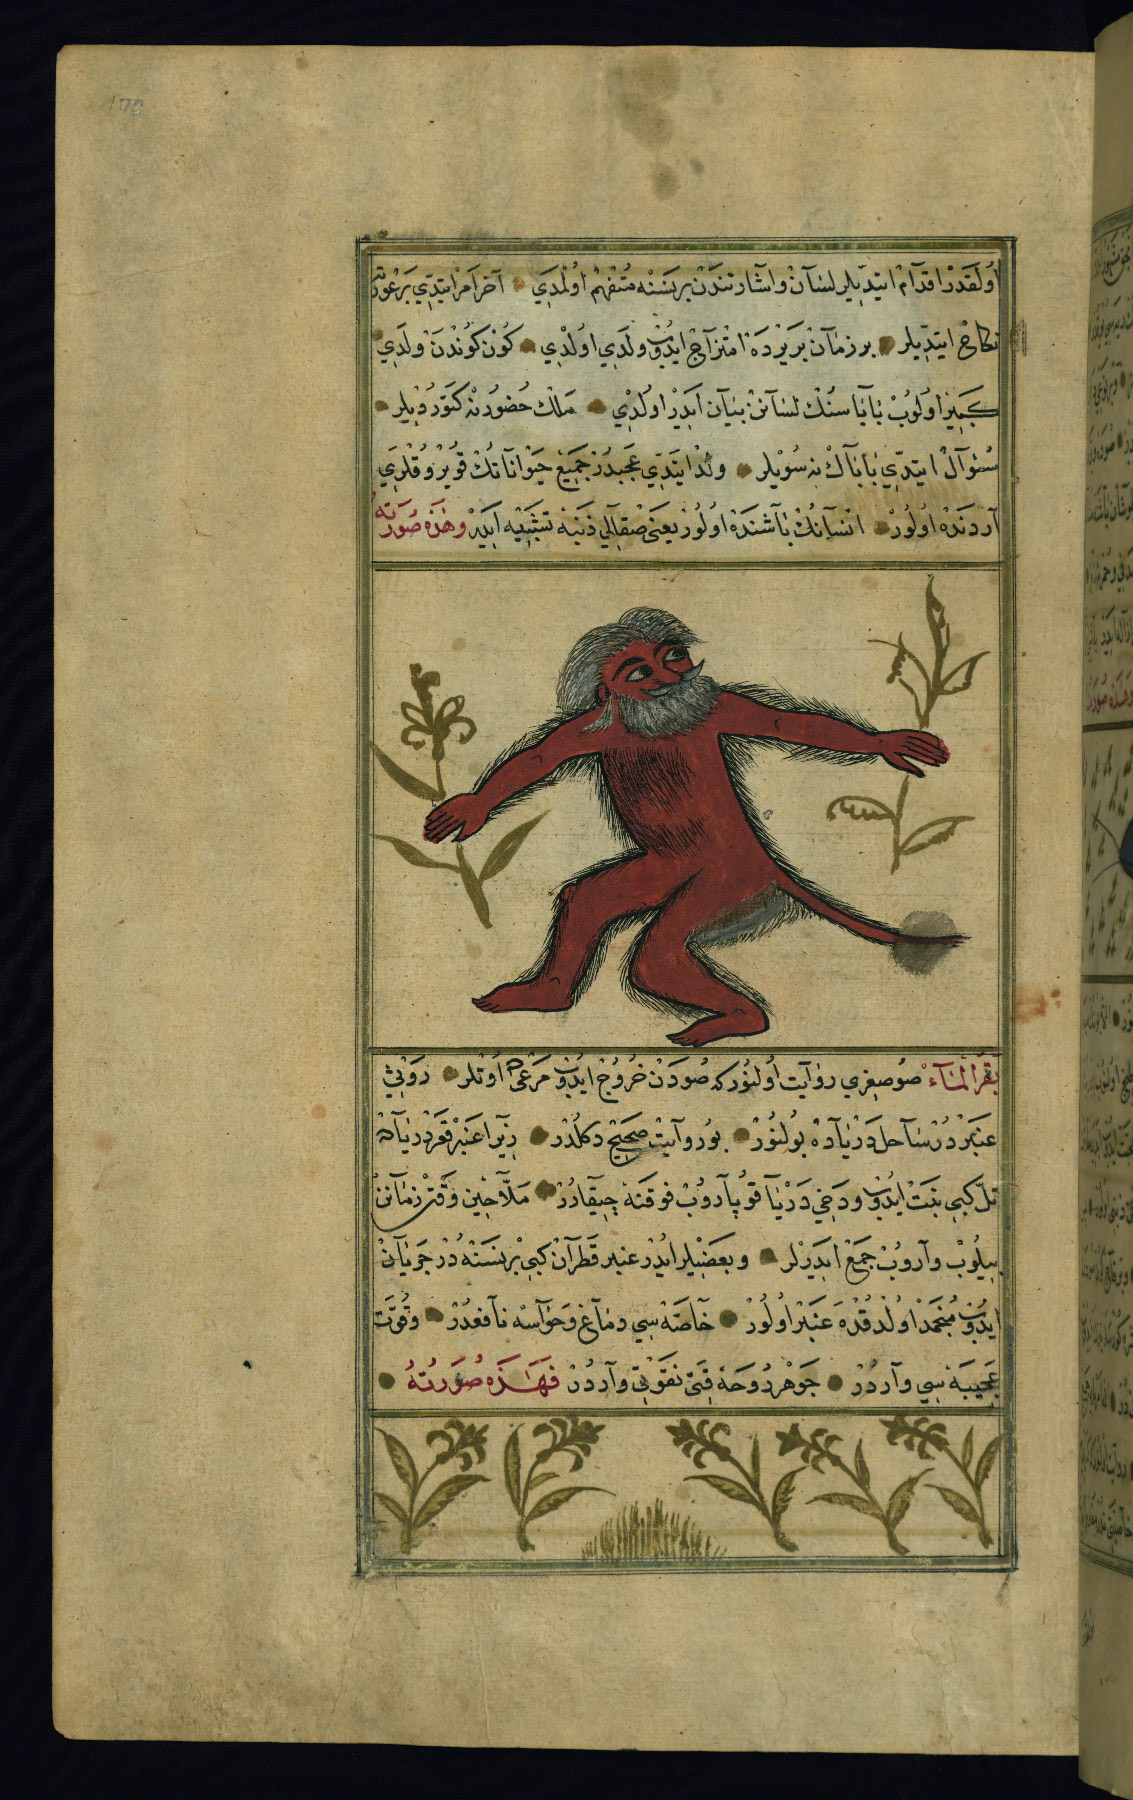 اولقدر اقدام ایتدیلر لسان و اشارتندن بر نسنه متفهم اولمدی آخر امر ایتدی بر عورت
نکاح ایتدیلر بر زمان بر یرده امتزاج ایدوب ولدی اولدی کون کوندن ولدی
کبیر اولوب باباسنک لسانن بیان ایدر اولدی ملک حضورنه کتوردیلر
سؤال ایتدی باباك نه سویلر ولد ایتدی عجبدر جمیع حیواناتک قویروقلری
آردنده اولور انسانک باشنده اولور یعنی صقالی ذنبه تشبیه ایدر وهذه صورته
بقر الماء صو صغری روایت اولنورکه صودن خروج ایدوب مرعی اوتلر روثی
عنبردر ساحل دریاده بولنور بو روایت صحیح دکلدر زیرا عنبر قعر دریاده
تل کبی بنت ایدوب ودخی دریا قوپاروب فوقنه چیقارر ملاحین وقتن زمانن
بیلوب واروب جمع ایدرلر وبعضیلر ایدر عنبر قطران کبی بر نسنه در جریان
ایدوب منجمد اولدقده عنبر اولور خاصه سی دماغ وحواسه نافعدر وقوت
عجیبه سی واردر جوهر روحه قتی تقوتی واردر فهذه صورته